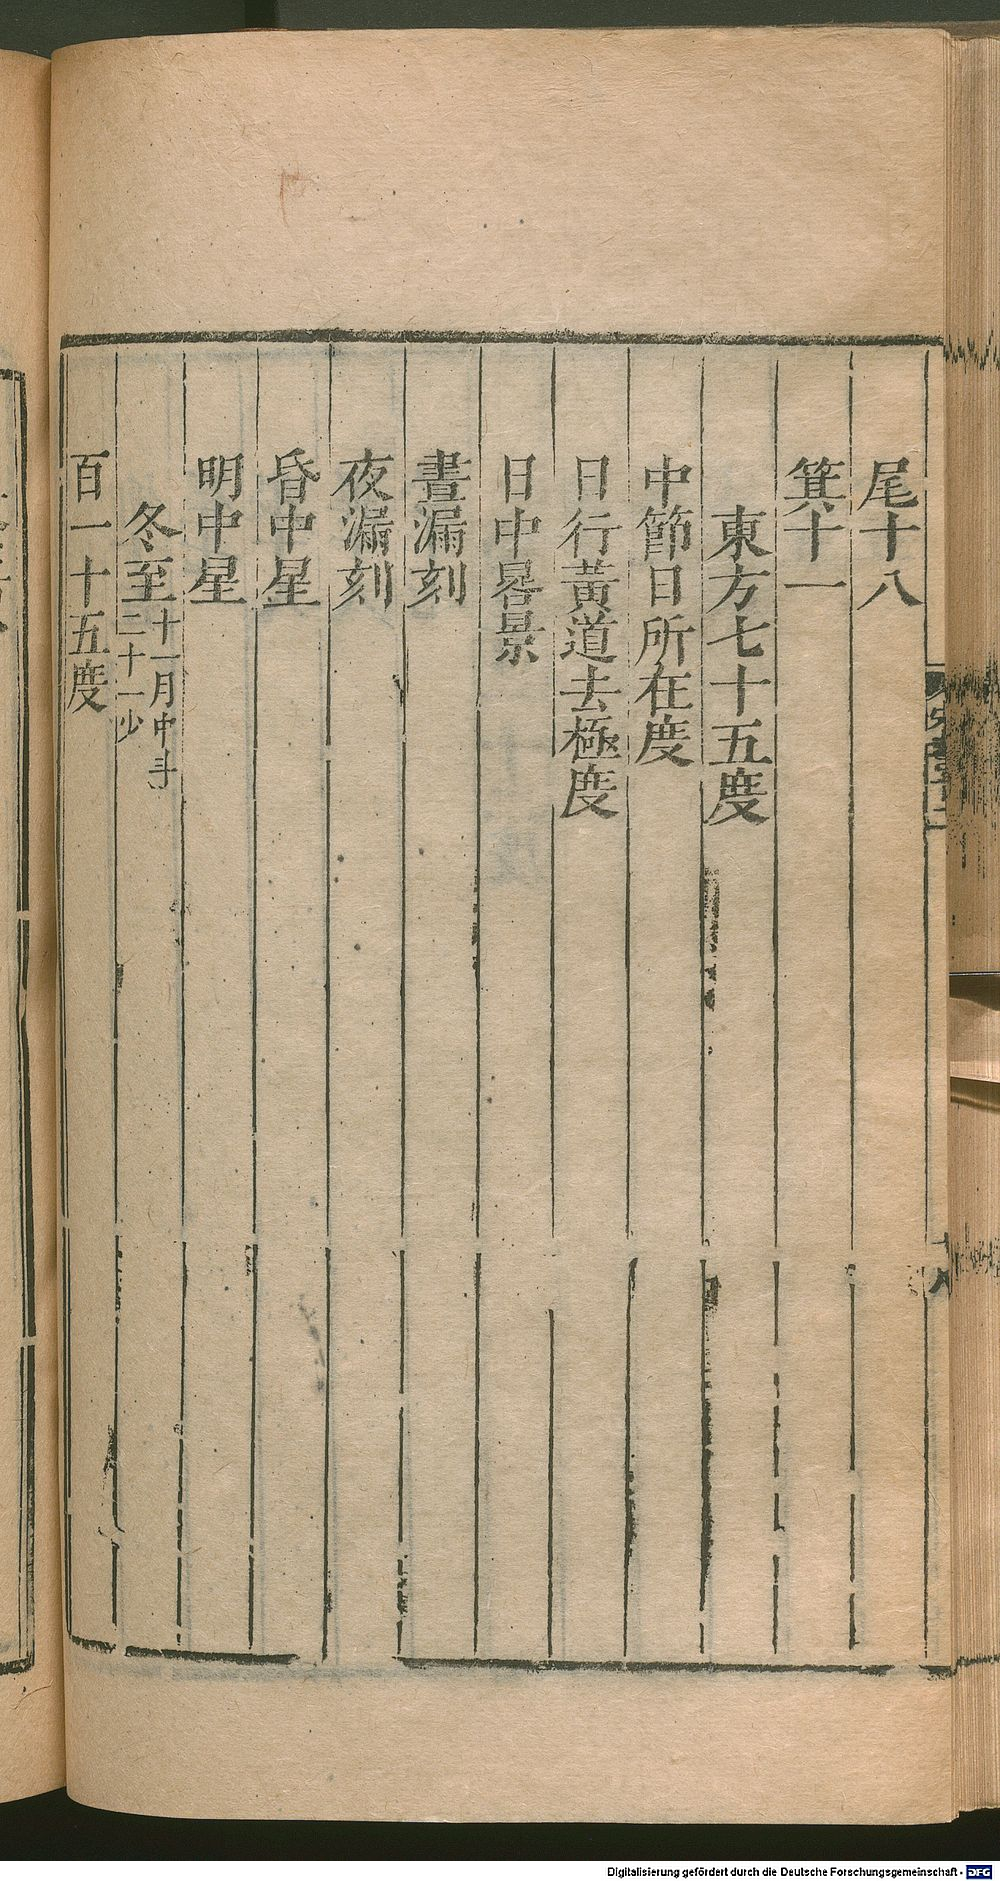 尾十八
箕十一
東方七十五度
中節日所在度
日行黃道去極度
日中晷景
晝漏刻
夜漏刻
昏中星
明中星
冬至十一月中斗
二十一少
百一十五度
Digitalisierung gefördert durch die Deutsche Forschungsgemeinschaft - DFG